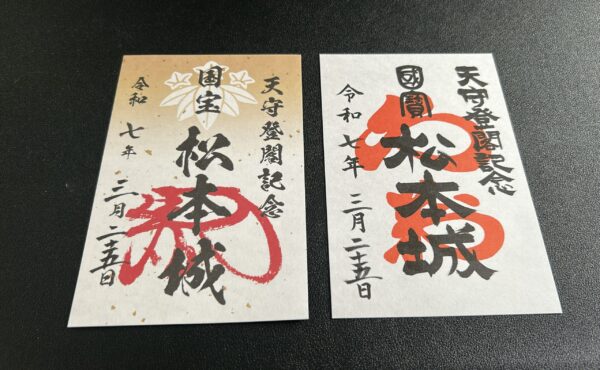 天守登閣記念
国宝
松本城
令和七年三月二十五日
天守登閣記念
國寶
松本城
令和七年三月二十五日